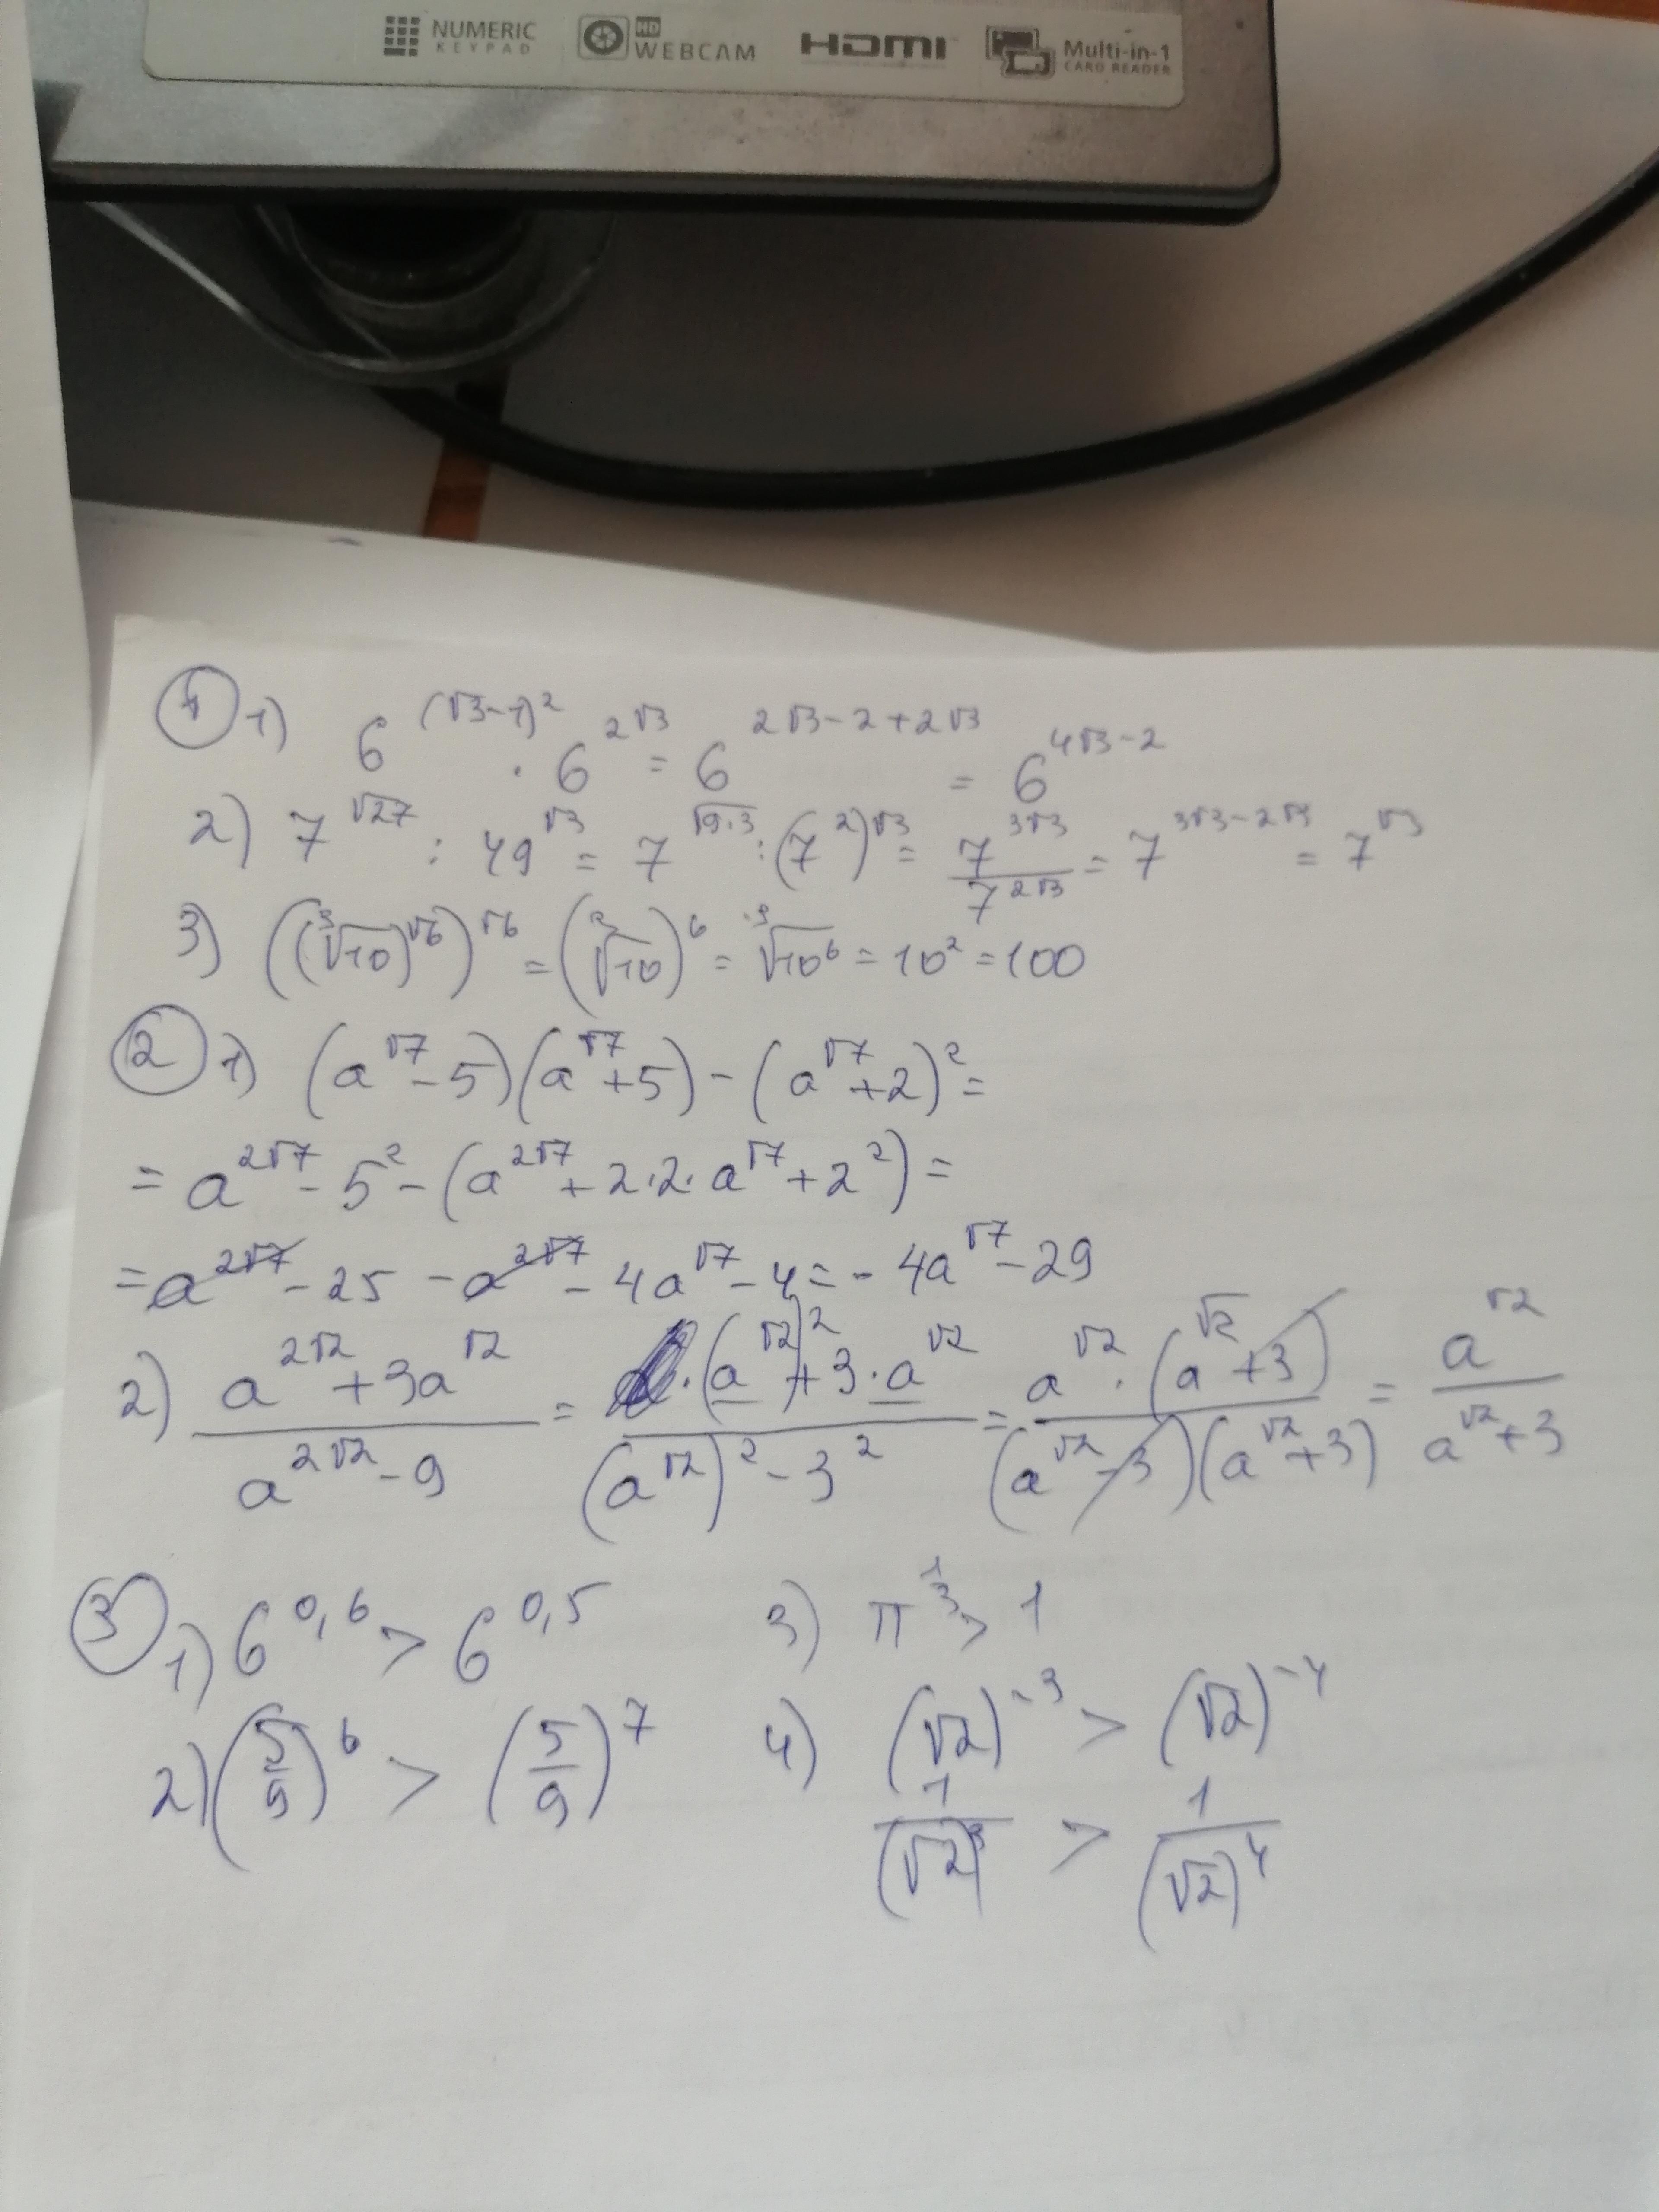 NUMERIC KEYPAD HD WEBCAM HDMI Multi-in-1 CARD READER
① 1) 6^(√3-1)² · 6^2√3 = 6^2√3-2+2√3 = 6^4√3-2
2) 7^√27 : 49^√3 = 7^√9·3 : (7²)^√3 = 7^3√3 / 7^2√3 = 7^3√3-2√3 = 7^√3
3) ((³√10)^√6)^√6 = (³√10)^6 = ³√10⁶ = 10² = 100
② 1) (a^√7 - 5)(a^√7 + 5) - (a^√7 + 2)² =
= a^2√7 - 5² - (a^2√7 + 2·2·a^√7 + 2²) =
= a^2√7 - 25 - a^2√7 - 4a^√7 - 4 = - 4a^√7 - 29
2) (a^2√2 + 3a^√2) / (a^2√2 - 9) = · (a^√2)² + 3·a^√2 / (a^√2)² - 3² = a^√2 · (a^√2 + 3) / (a^√2 - 3)(a^√2 + 3) = a^√2 / a^√2 + 3
③ 1) 6^0,6 > 6^0,5
2) (5/9)^6 > (5/9)^7
3) π^1/3 > 1
4) (√2)^-3 > (√2)^-4
1/(√2)³ > 1/(√2)⁴